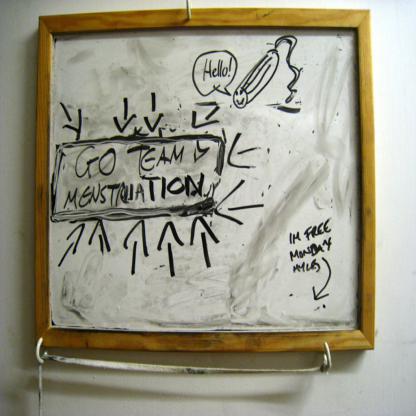 Hello!
GO TEAM
MENSTRUATION
IM FREE
MONDAY
MYLES